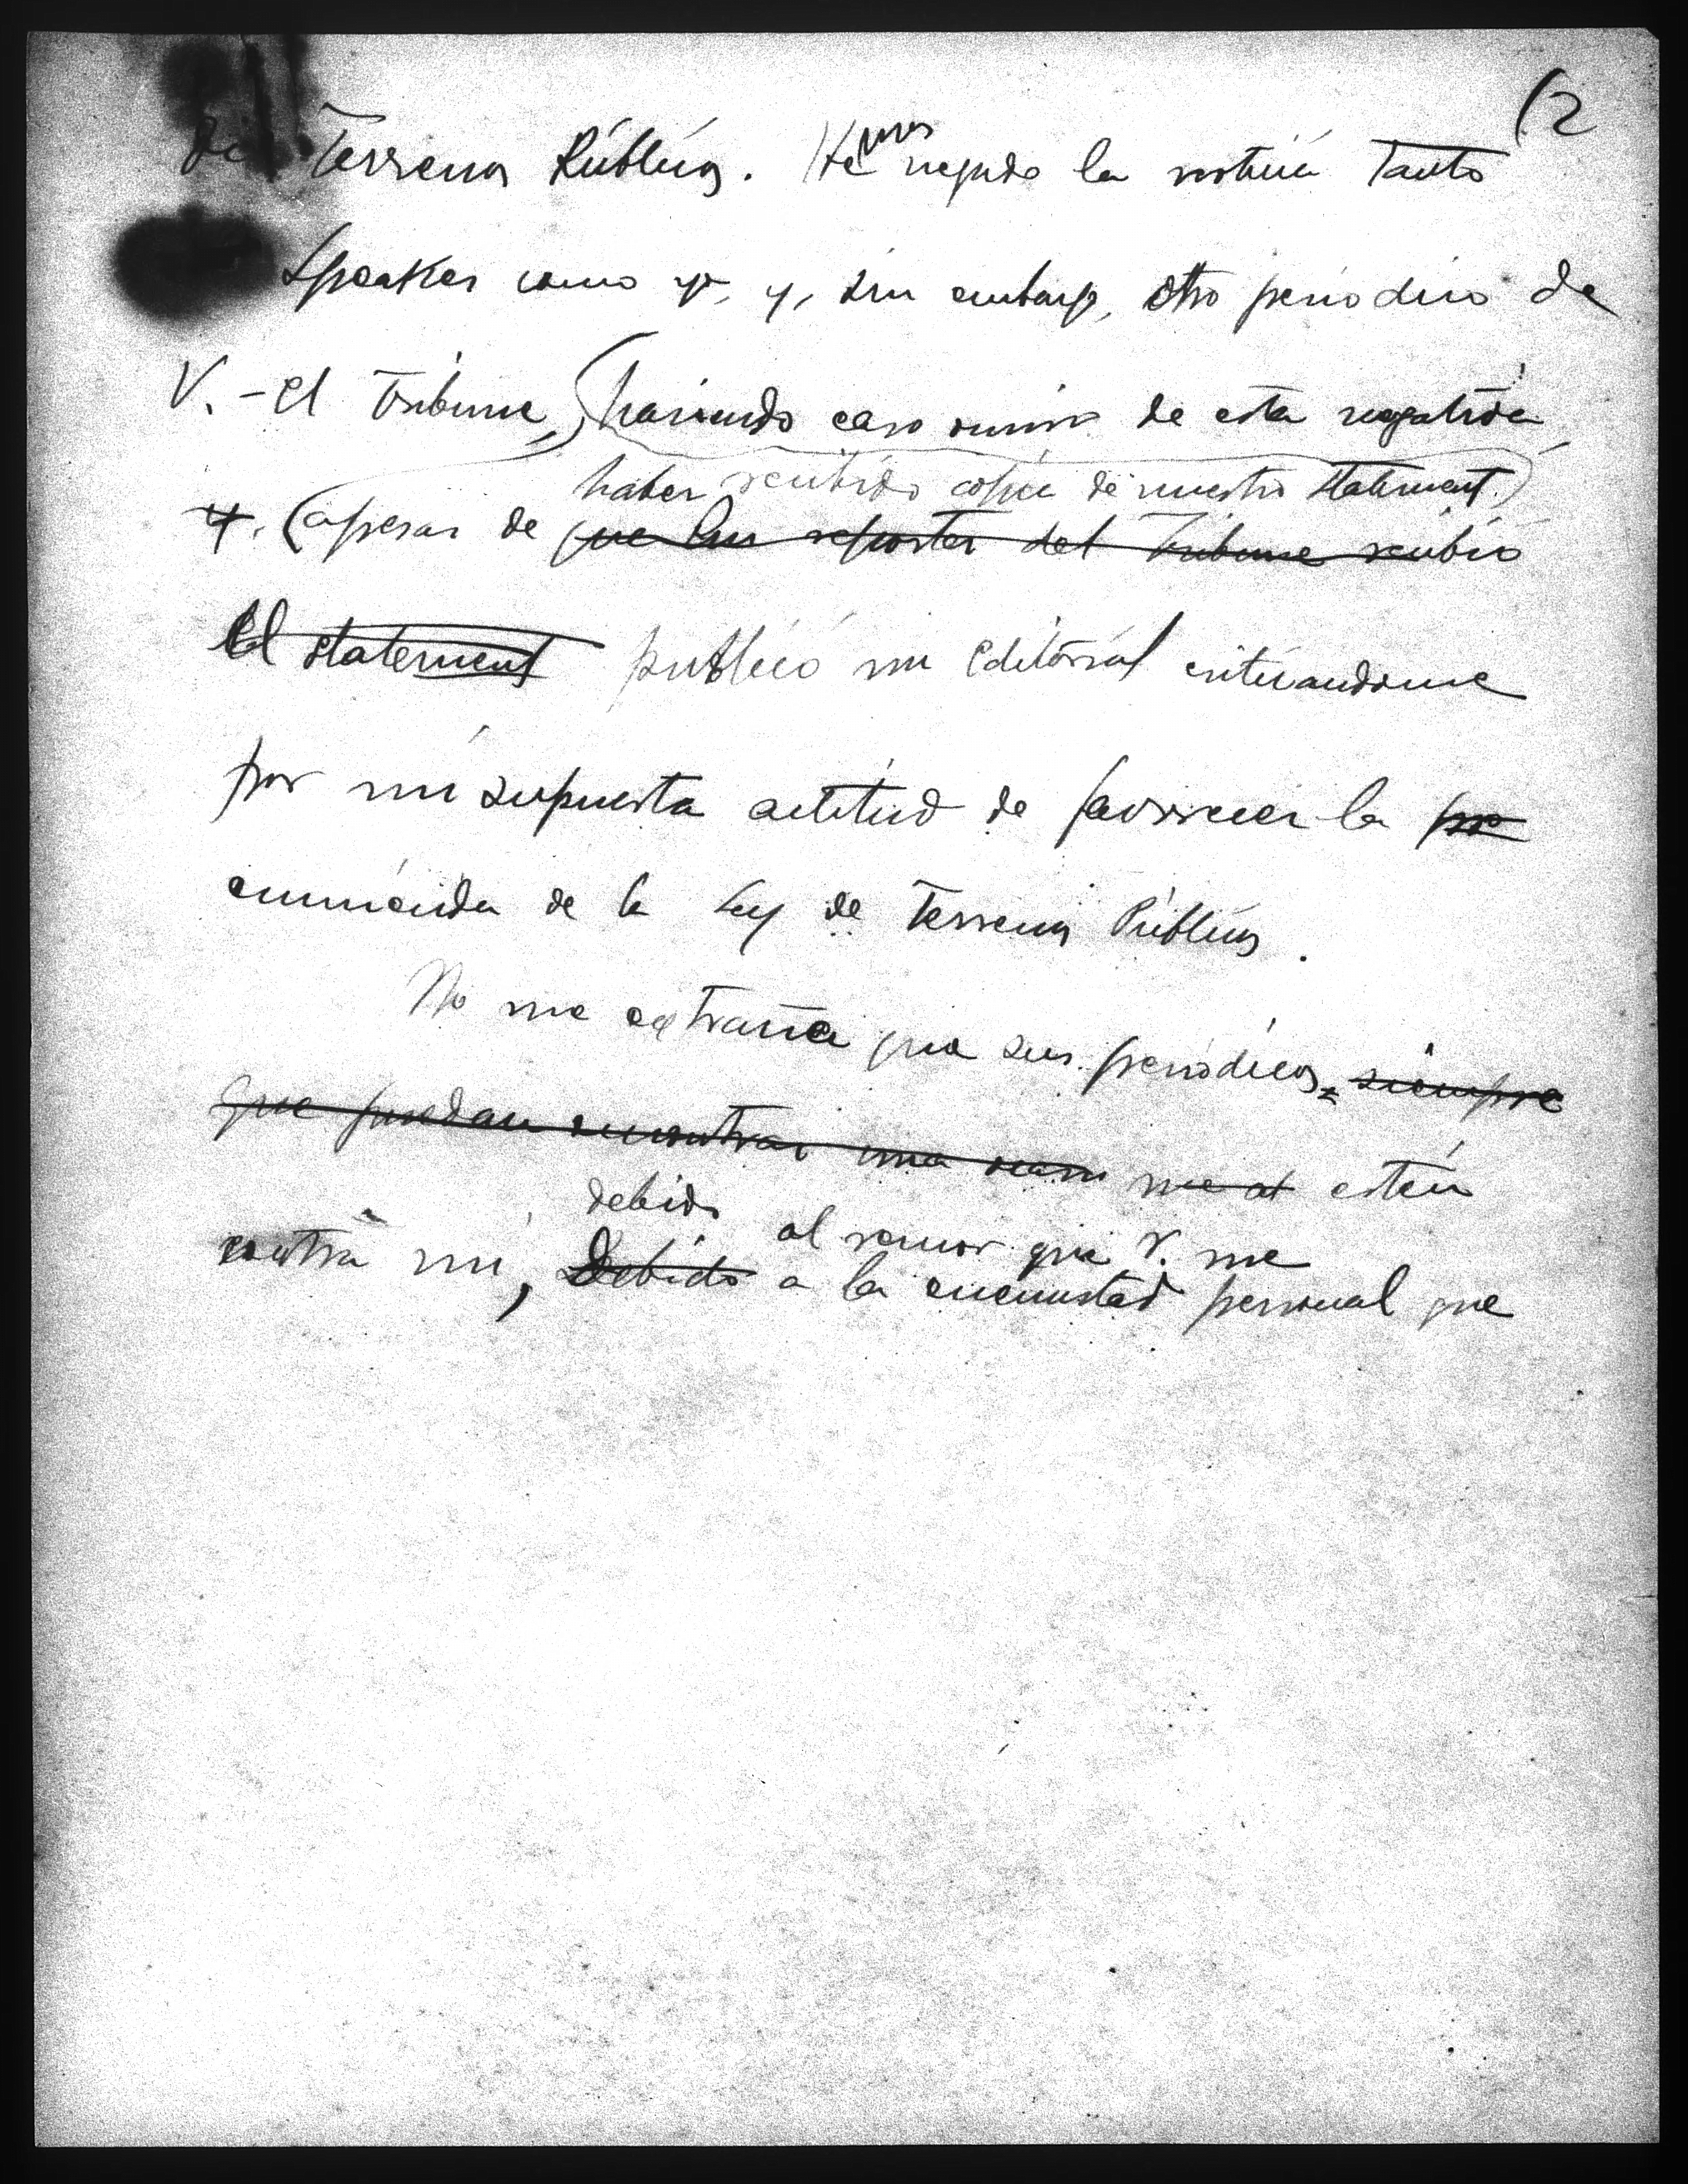 (2
de Terrenos Públicos. Hemos negado la noticia tanto
Speaker como yo, y, sin embargo, otro periodico de
V. - El Tribune, (haciendo caso omiso de esta negativa
haber recibido copia de nuestro statement.)
y. (apesar de que un reporter del Tribune recibió
el statement publicó un editorial criticandome
por mi supuesta actitud de favorecer la pr
enmienda de la Ley de Terrenos Públicos.
No me extraña que sus periódicos, siempre
que puedan encontrar una me at estén
debido al rencor que V. me
contra mi, Debido a la enemistad personal que